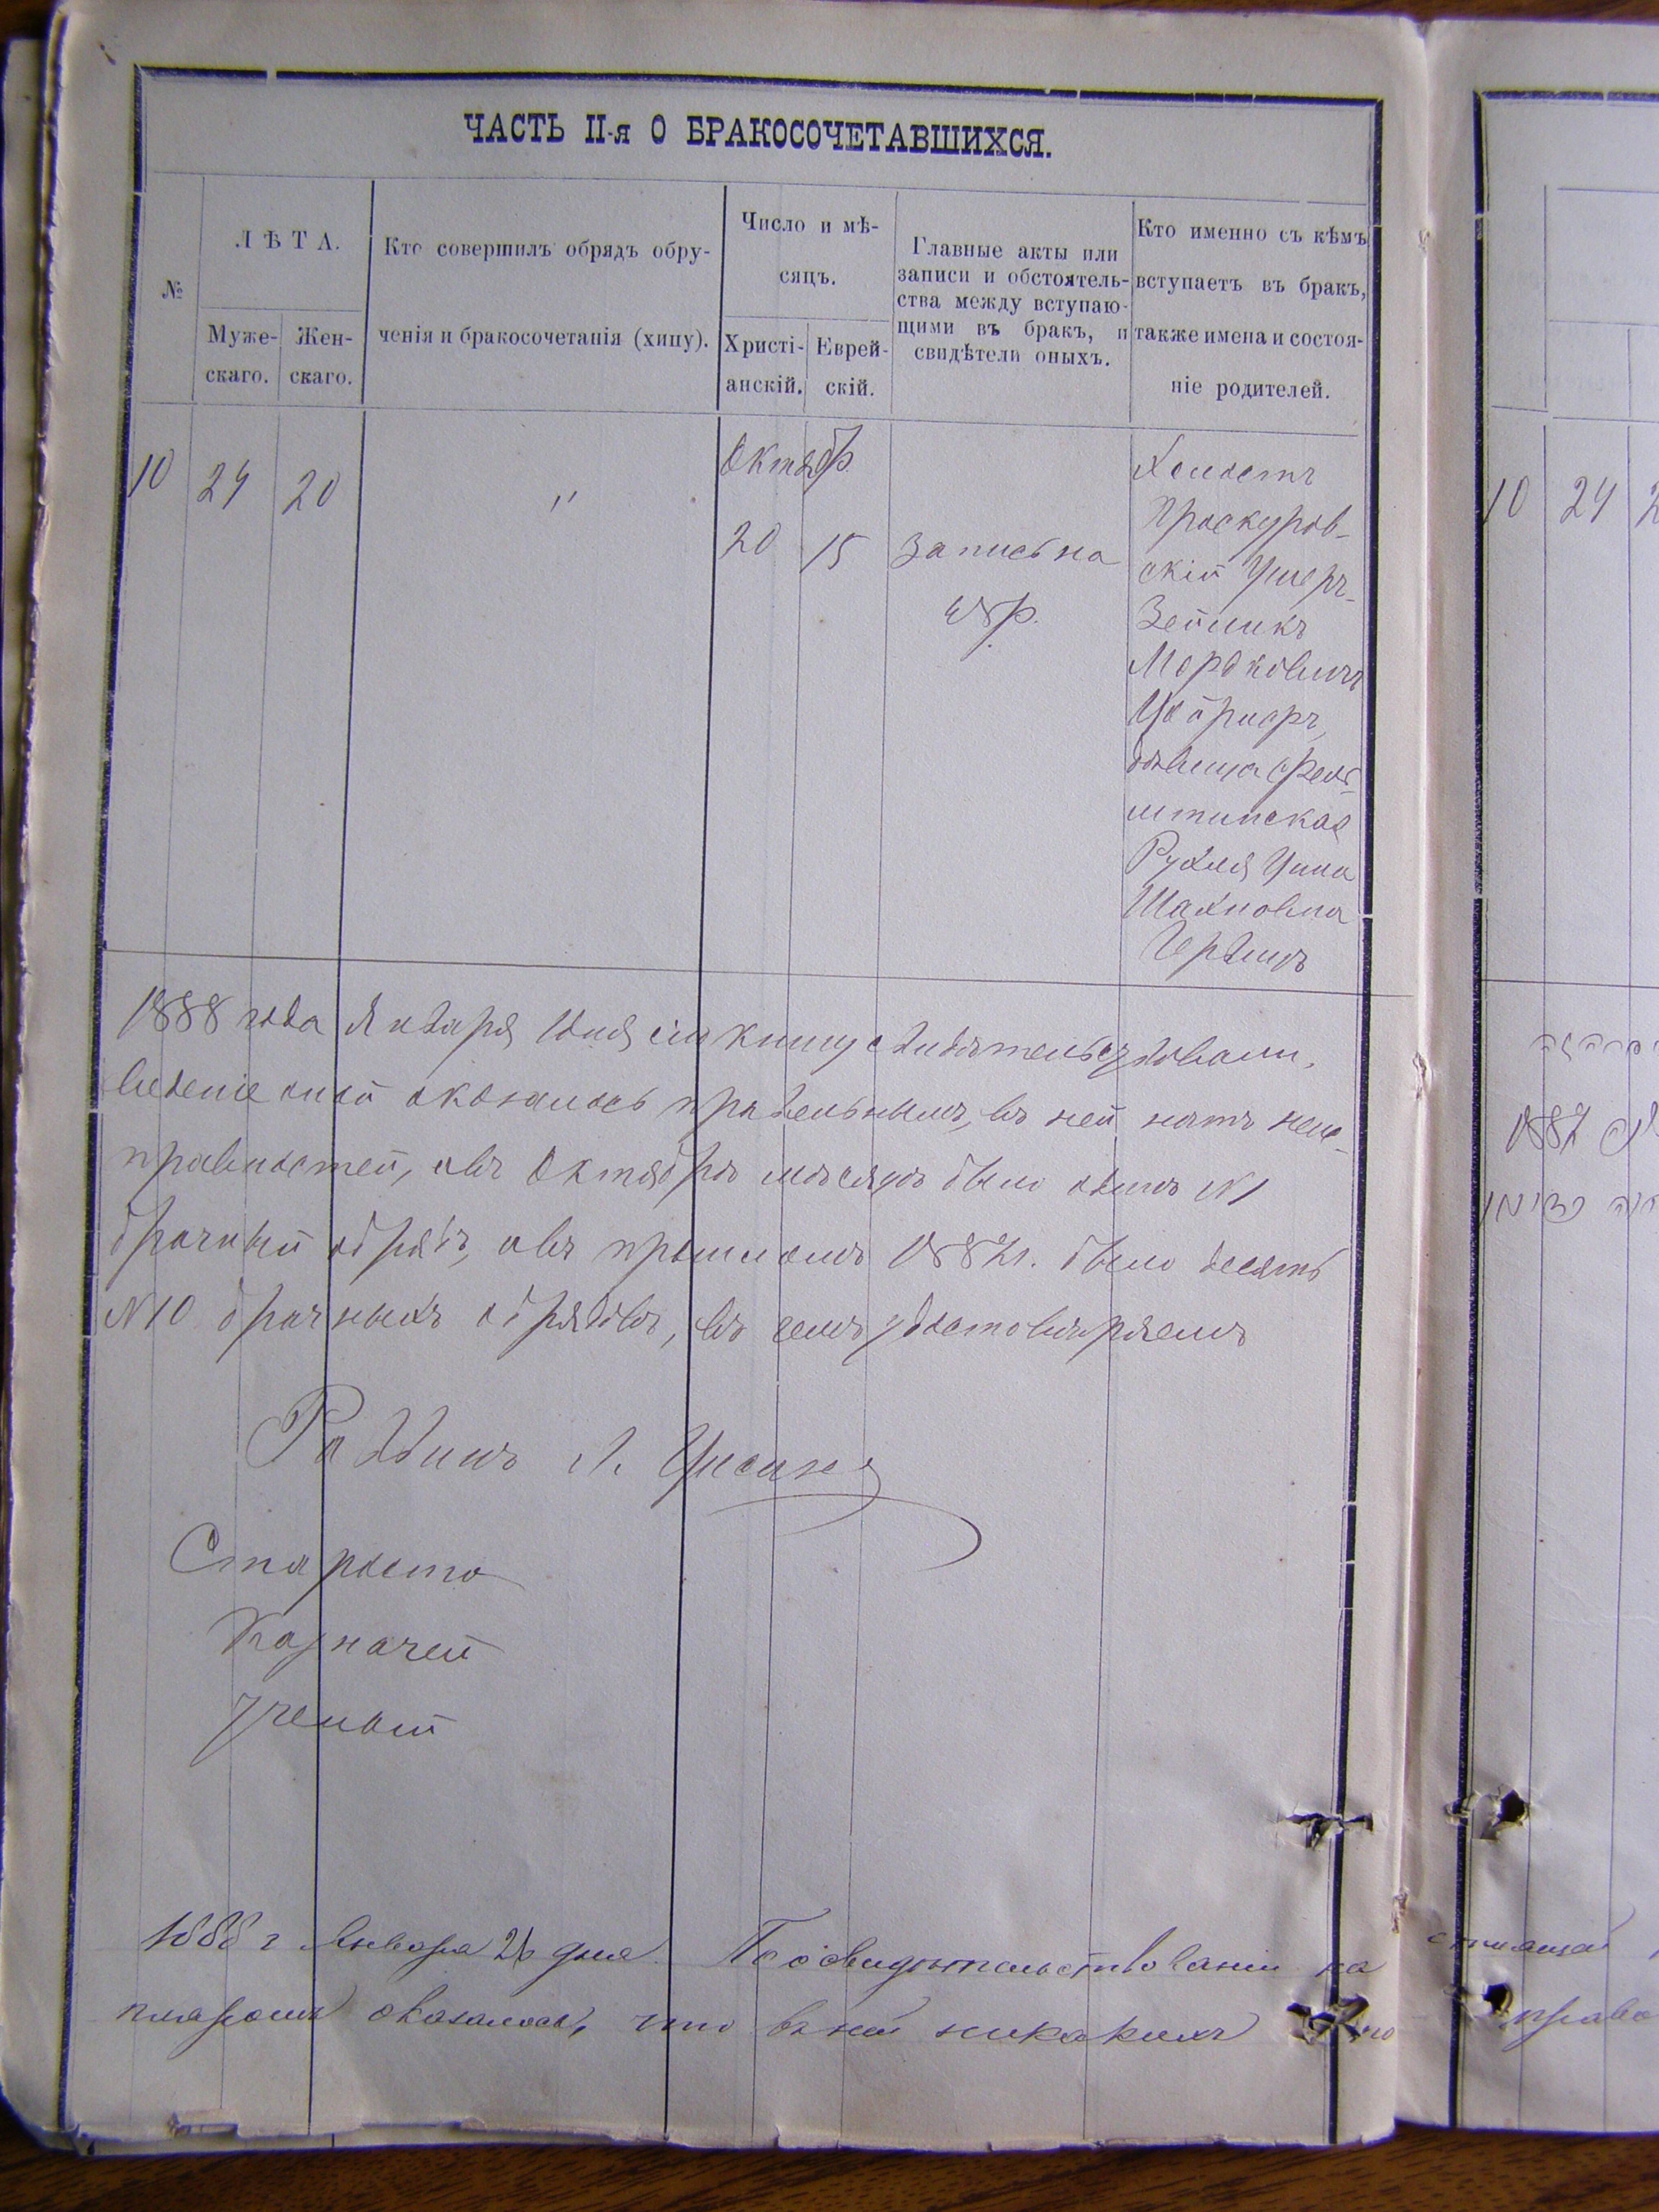 ЧАСТЬ II-я О БРАКОСОЧЕТАВШИХСЯ.
№
ЛѢТА.
Муже-
скаго.
Жен-
скаго.
Кто совершилъ обрядъ обру-
ченія и бракосочетанія (хипу).
Число и мѣ-
сяцъ.
Христі-
анскій.
Еврей-
скій.
Главные акты или
записи и обстоятель-
ства между вступаю-
щими въ бракъ, и
свидѣтели оныхъ.
Кто именно съ кѣмъ
вступаетъ въ бракъ,
также имена и состоя-
ніе родителей.
10 24 20 " Октябр.
20 15 Запись на
48 р.
Холостъ
Проскуров-
скій Ушеръ-
Зейликъ
Мордковичъ
дѣвица Фель-
штинская
Рухля
Шахновна
10 24 2
1888 года Января 1 дня сію книгу свидѣтельствовали,
веденіе оной оказалось правельнымъ, въ ней нѣтъ неис-
правностей, а въ Октябрѣ мѣсяцѣ было одинъ №1
брачный обрядъ, а въ прошломъ 1887 г. было десять
№10 брачныхъ обрядовъ, въ чемъ удостовѣряемъ
Раввинъ
Староста
Казначей
Ученый
1887
1888 г Января 26 дня. По освидѣтельствованіи на стоящей
оказалось, что въ ней никакихъ